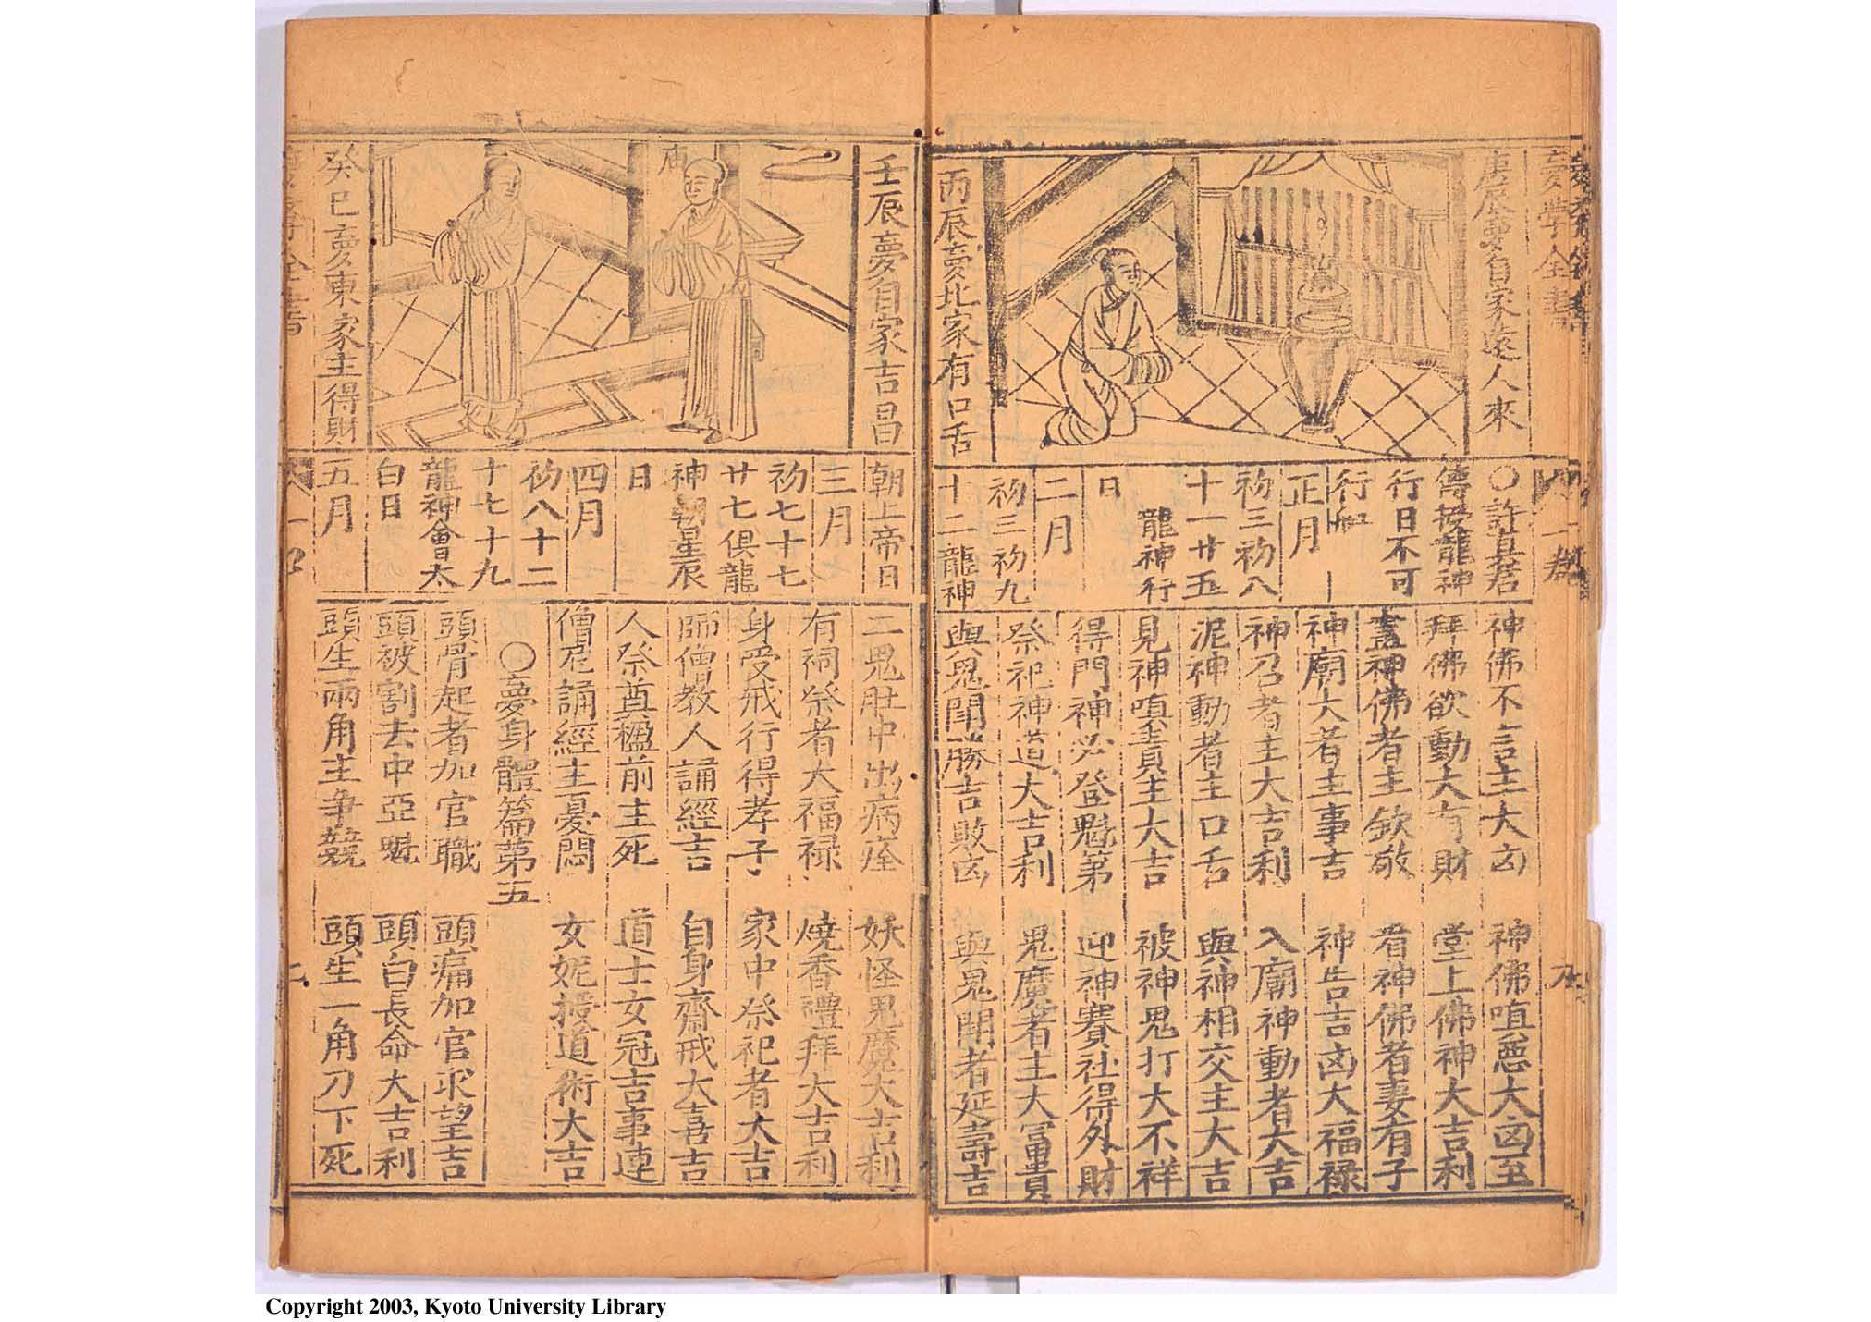 夢學全書
庚辰夢自家遠人來
丙辰夢北家有口舌
○許真君
傳授龍神
行日不可
行船
正月
初三初八
十一廿五
龍神行
日
二月
初三初九
十二龍神
神佛不言主大凶
神佛嗔惡大凶至
拜佛欲動大有財
堂上佛神大吉利
畫神佛者主欽敬
看神佛者妻有子
神廟大者主事吉
神告吉凶大福禄
神召者主大吉利
入廟神動者大吉
泥神動者主口舌
與神相交主大吉
見神嗔責主大吉
被神鬼打大不祥
得門神必登魁第
迎神賽社得外財
祭祀神道大吉利
鬼魔者主大富貴
與鬼鬪勝吉敗凶
與鬼鬪者延壽吉
壬辰夢自家吉昌
廟
癸巳夢東家主得財
朝上帝日
三月
初七十七
廿七俱龍
神朝星辰
日
四月
初八十二
十七十九
龍神會太
白日
五月
二鬼肚中出病痊
妖怪鬼魔大吉利
有祠祭者大福禄
燒香禮拜大吉利
身受戒行得孝子
家中祭祀者大吉
師僧教人誦經吉
自身齋戒大喜吉
人祭奠櫺前主死
道士女冠吉事連
僧尼誦經主憂悶
女妮授道術大吉
○夢身體篇第五
頭骨起者加官職
頭痛加官求望吉
頭被割去中亞魁
頭白長命大吉利
頭生兩角主争競
頭生一角刀下死
Copyright 2003, Kyoto University Library